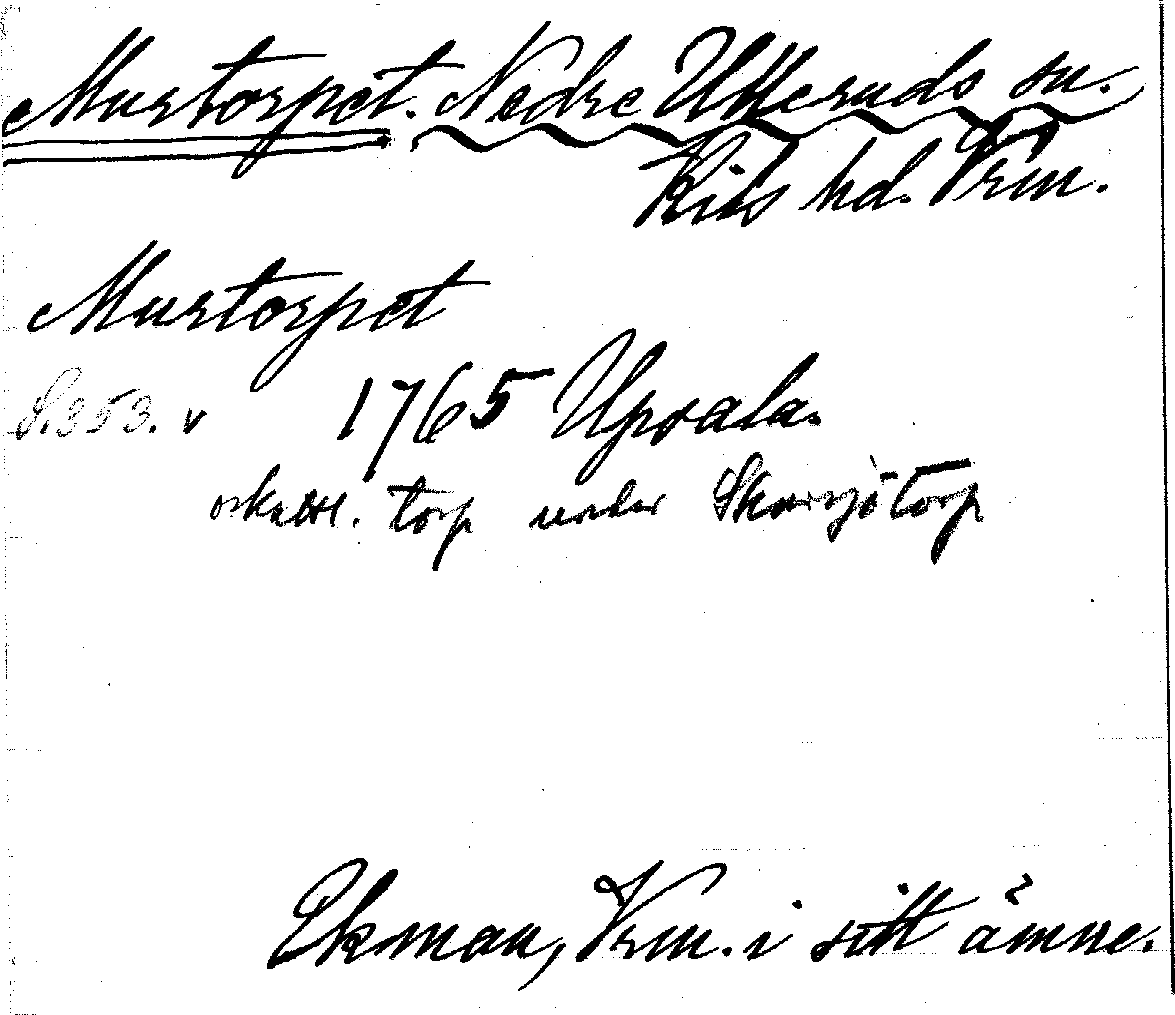 Murtorpet. Nedre Ulleruds sn.
Kils hd. Vrm.
Murtorpet
S. 353. v 1765 Upsala.
oskattl. torp under Skarsjötorp
Ekman, Vrm. i sitt ämne.